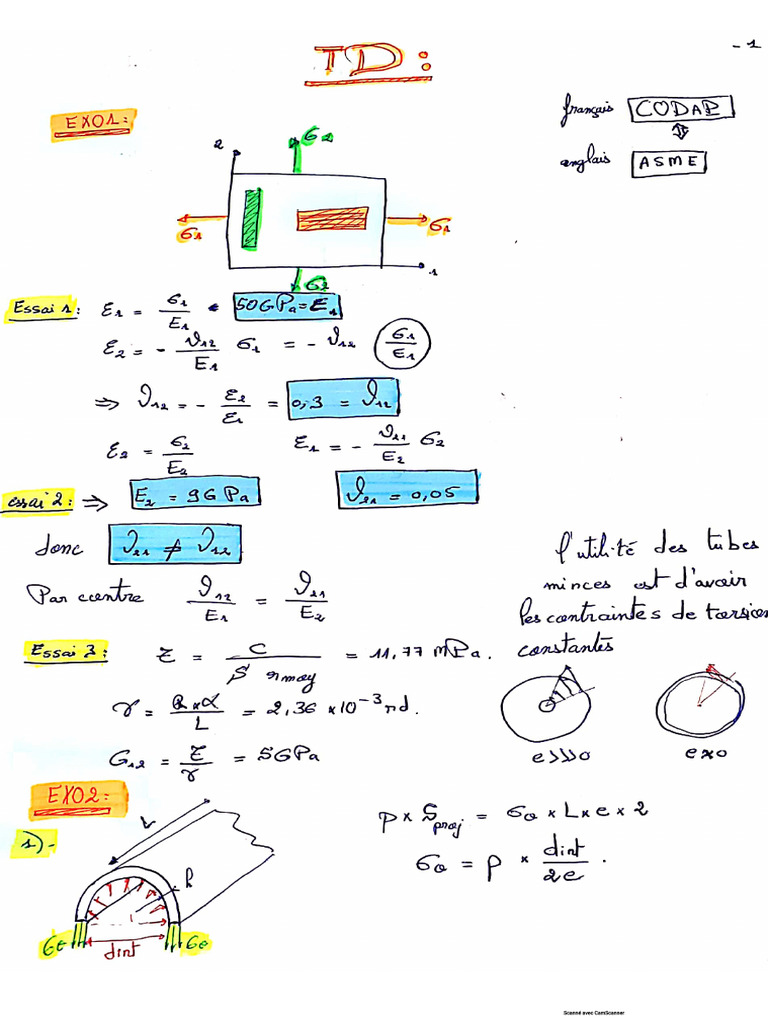 - 1
TD:
français CODAP
EXO1:
anglais ASME
2
σ2
σ1
σ1
1
σ2
Essai 1: ε1 = σ1/E1 • 50GPa = E1
ε2 = - ν12/E1 σ1 = - ν12 (σ1/E1)
⇒ ν12 = - ε2/ε1 = 0,3 = ν12
ε2 = σ2/E2 ε1 = - ν21/E2 σ2
essai 2: ⇒ E2 = 9GPa ν21 = 0,05
donc ν21 ≠ ν12
Par contre ν12/E1 = ν21/E2
l'utilité des tubes
minces est d'avoir
les contraintes de torsion
constantes
Essai 3: τ = C/(S rmoy) = 11,77 mPa.
γ = R×α/L = 2,36 × 10⁻³ rd.
G12 = τ/γ = 5GPa
e>>0
e≈0
EXO2:
1)-
L
p × Sproj = σθ × L × e × 2
σθ = p × dint/2e .
σθ
dint
σθ
Scanné avec CamScanner